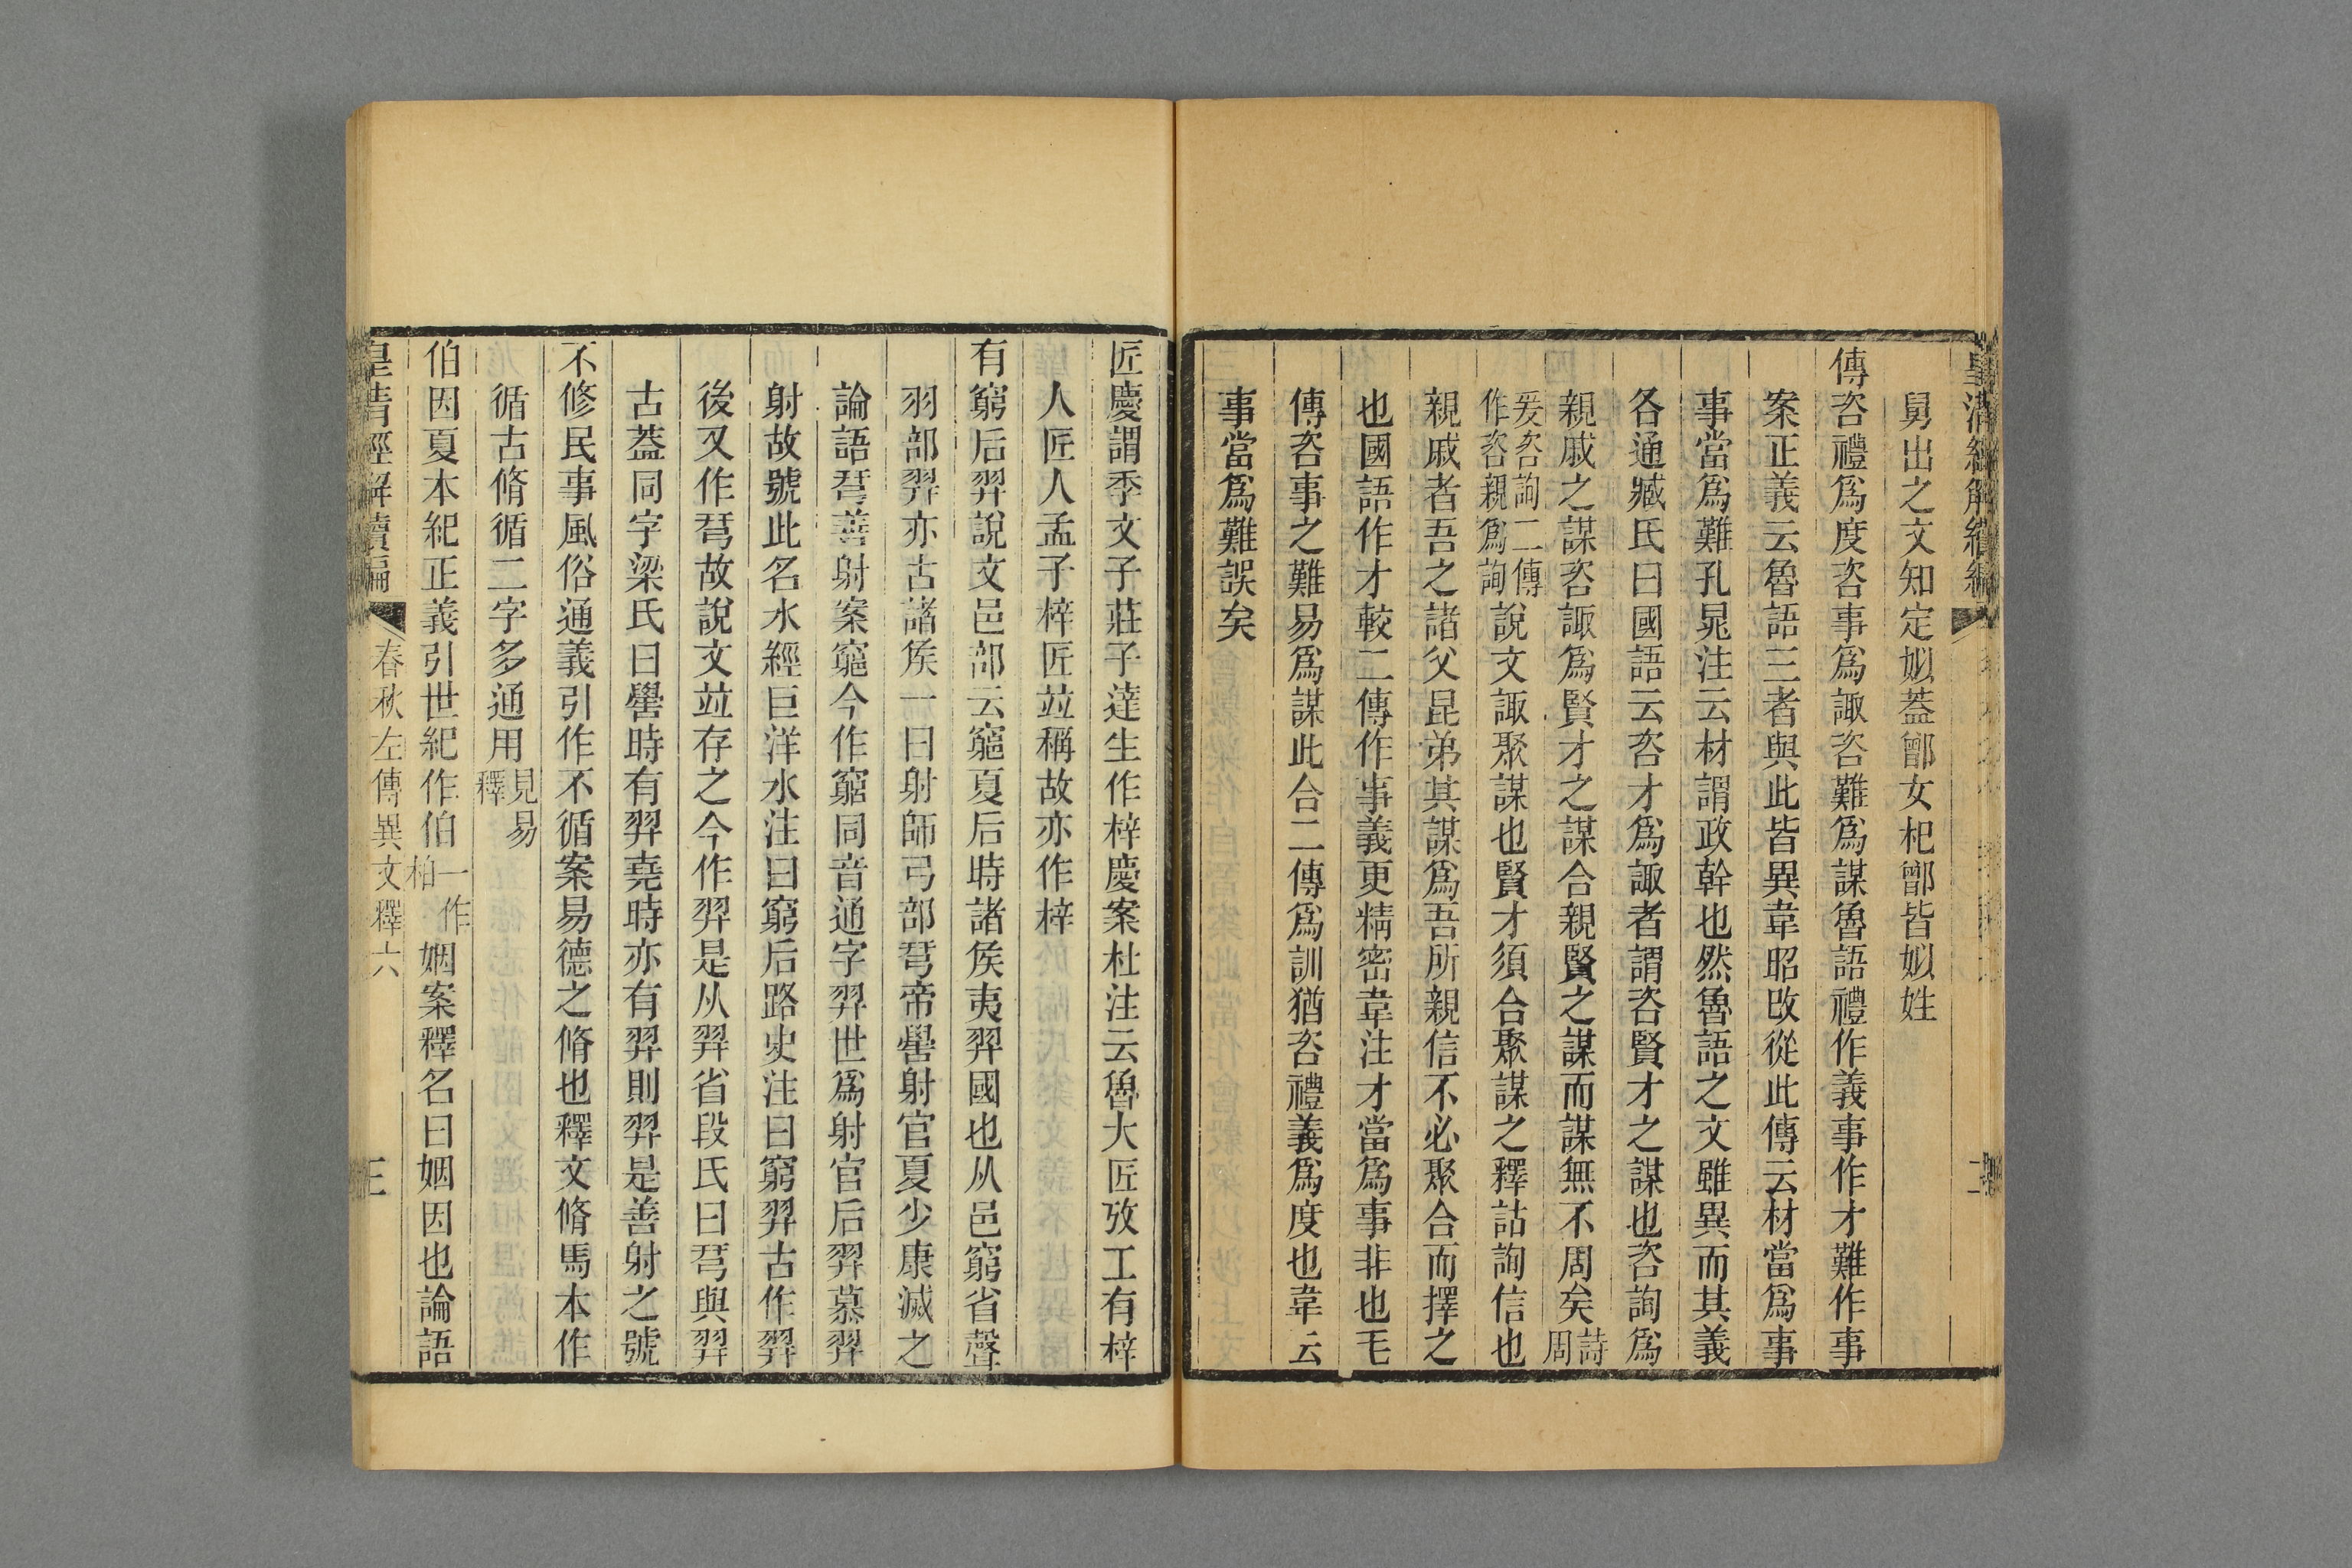 皇清經解續編
二
舅出之文知定姒蓋鄫女杞鄫皆姒姓
傳咨禮爲度咨事爲諏咨難爲謀魯語禮作義事作才難作事
案正義云魯語三者與此皆異韋昭改從此傳云材當爲事
事當爲難孔晁注云材謂政幹也然魯語之文雖異而其義
各通臧氏曰國語云咨才爲諏者謂咨賢才之謀也咨詢爲
親戚之謀咨諏爲賢才之謀合親賢之謀而謀無不周矣詩周
爰咨詢二傳作咨親爲詢說文諏聚謀也賢才須合聚謀之釋詁詢信也
親戚者吾之諸父昆弟其謀爲吾所親信不必聚合而擇之
也國語作才較二傳作事義更精密韋注才當爲事非也毛
傳咨事之難易爲謀此合二傳爲訓猶咨禮義爲度也韋云
事當爲難誤矣
匠慶謂季文子莊子達生作梓慶案杜注云魯大匠攷工有梓
人匠人孟子梓匠竝稱故亦作梓
有窮后羿說文邑部云竆夏后時諸侯夷羿國也从邑窮省聲
羽部羿亦古諸侯一曰射師弓部𢏗帝嚳射官夏少康滅之
論語𢏗善射案竆今作窮同音通字羿世爲射官后羿慕羿
射故號此名水經巨洋水注曰窮后路史注曰窮羿古作羿
後又作𢏗故說文竝存之今作羿是从羿省段氏曰𢏗與羿
古蓋同字梁氏曰嚳時有羿堯時亦有羿則羿是善射之號
不修民事風俗通義引作不循案易德之脩也釋文脩馬本作
循古脩循二字多通用見易釋
伯因夏本紀正義引世紀作伯一作柏姻案釋名曰姻因也論語
皇清經解續編
春秋左傳異文釋六
三